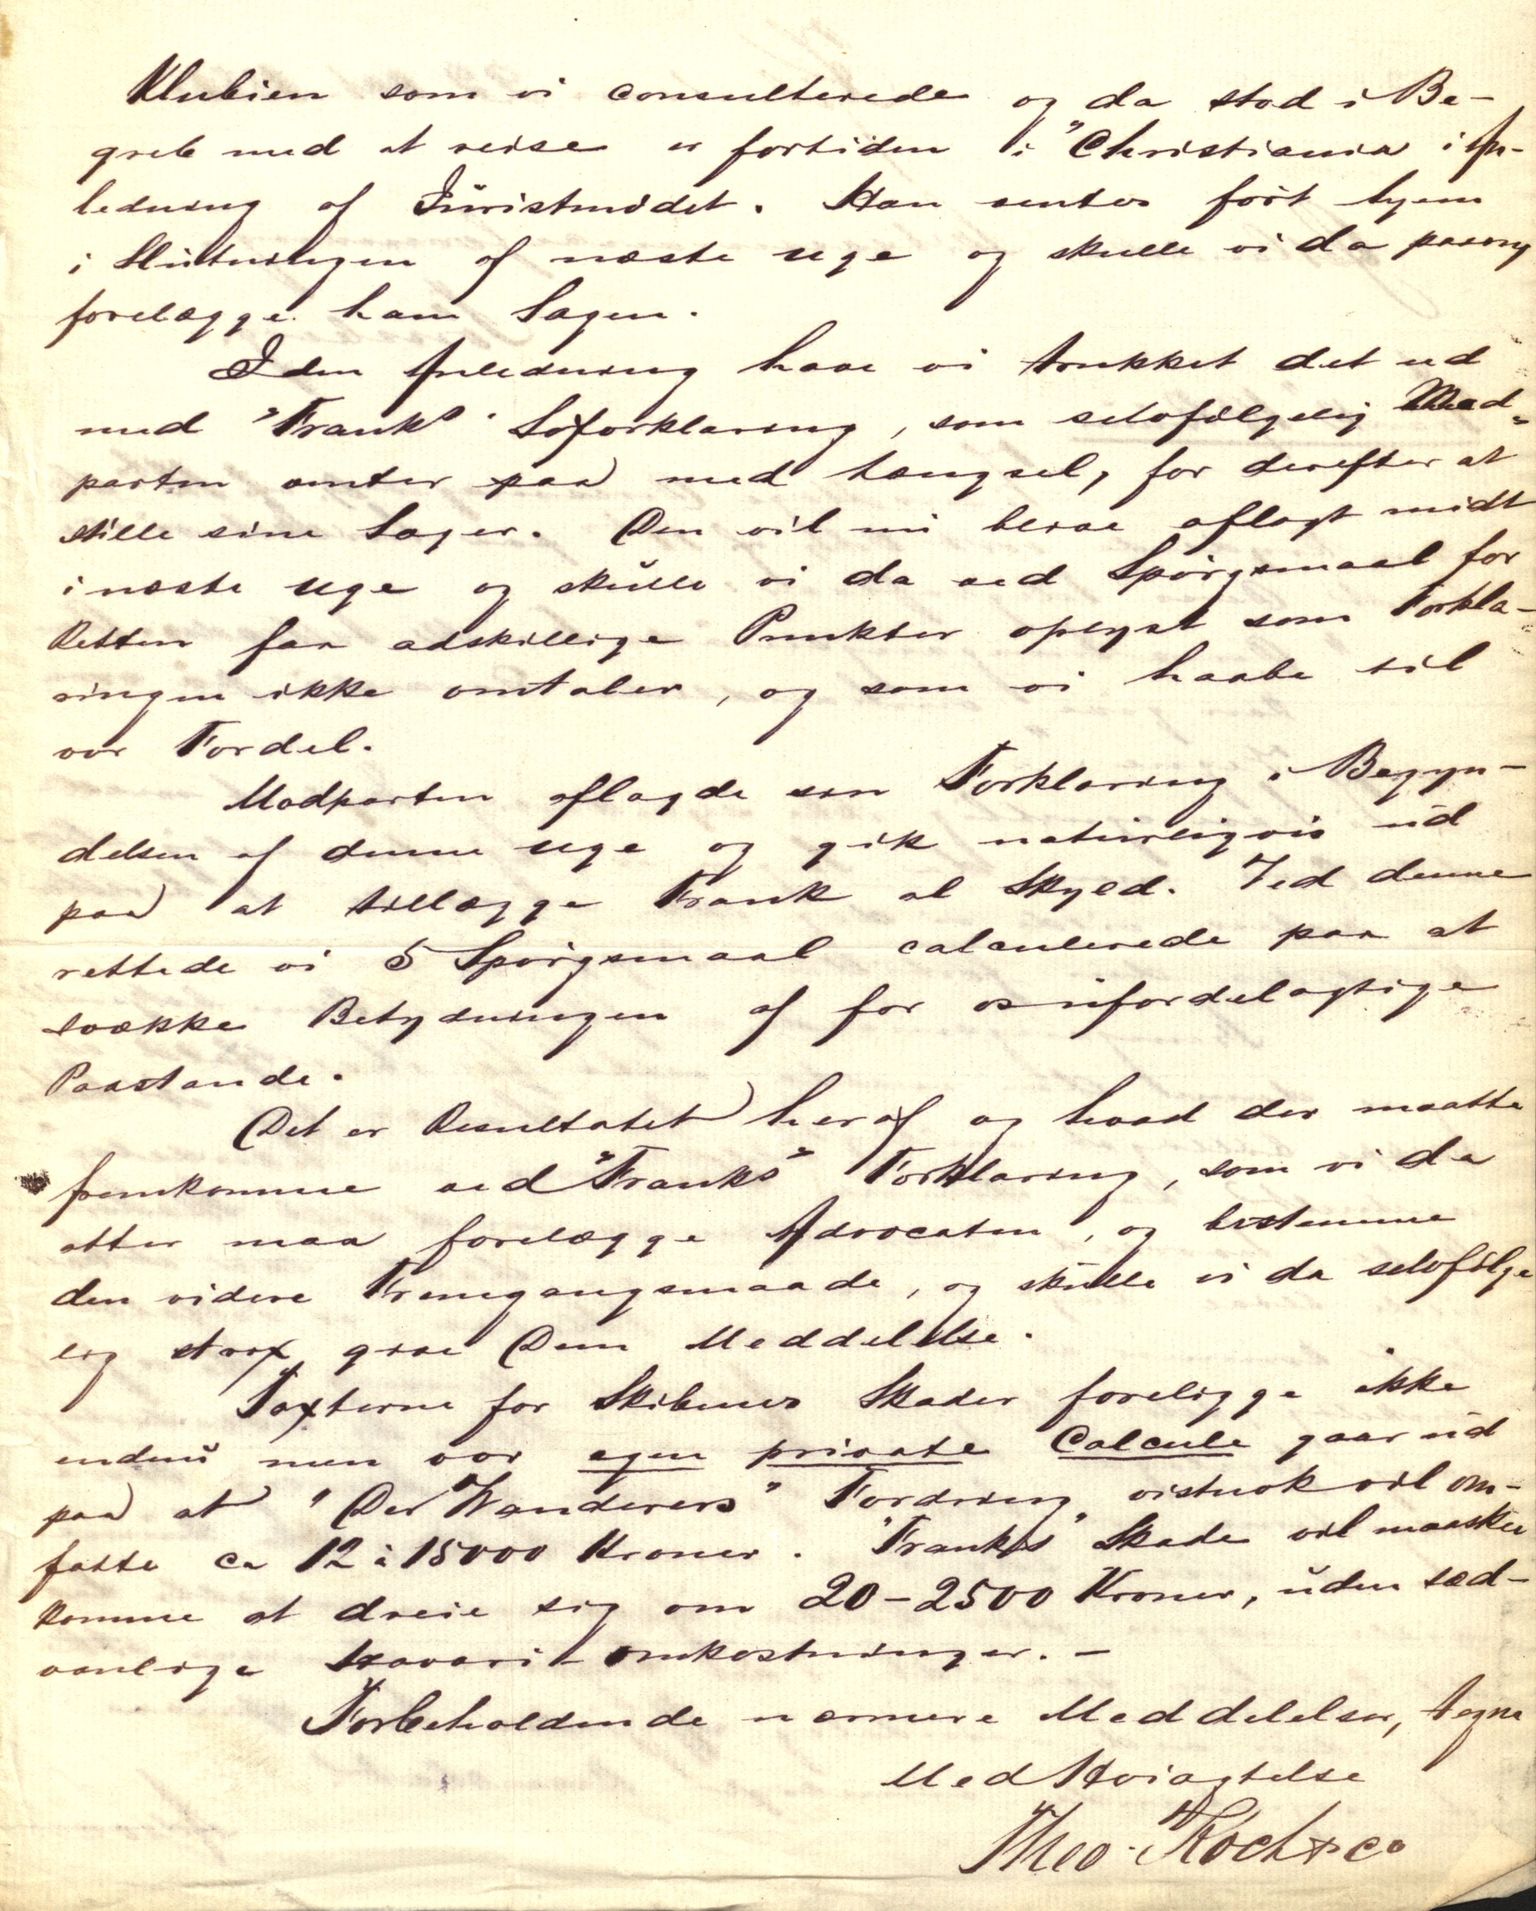 Klubien som vi consulterede og da stod i Be-
greb med at reise er fortiden i "Christiania i An-
ledning af Juristmödet. Han ventes först hjem
i Slutningen af næste Uge og skulle vi da paany
forelægge ham Sagen.
I den Anledning have vi trukket det ud
med "Franks" Söforklaring, som selvfölgelig Mod-
parten venter paa med Længsel, for derefter at
stille sine Sager. Den vil nu blive aflagt midt
i næste Uge og skulle vi da ved Spörgsmaal for
Retten faa adskillige Punkter oplyst som Forkla-
ringen ikke omtaler, og som vi haabe til
vor Fordel.
Modparten aflagde sin Forklaring i Begyn-
delsen af denne Uge og gik naturligvis ud
paa at tillægge Frank al Skyld. Ved denne
rettede vi 5 Spörgsmaal calculerede paa at
svække Betydningen af for os ufordelagtige
Paastande.
Det er Resultatet heraf og hvad der maatte
fremkomme ved "Franks" Forklaring, som vi da
atter maa forelægge Advocaten, og bestemme
den videre Fremgangsmaade, og skulle vi da selvfölge
lig strax give Dem Meddelelse.
Taxterne for Skibenes Skader foreligge ikke
endnu men vor egen private Calcule gaar ud
paa at "Der Wanderers" Fordring vistnok vil om-
fatte ca 12 à 15000 Kroner. "Franks" Skade vil maaskee
komme at dreie sig om 20-2500 Kroner, uden sæd-
vanlige Havari-omkostninger. -
Forbeholdende nærmere Meddelelser, tegne
Med Höiagtelse
Theo. Koch & Co